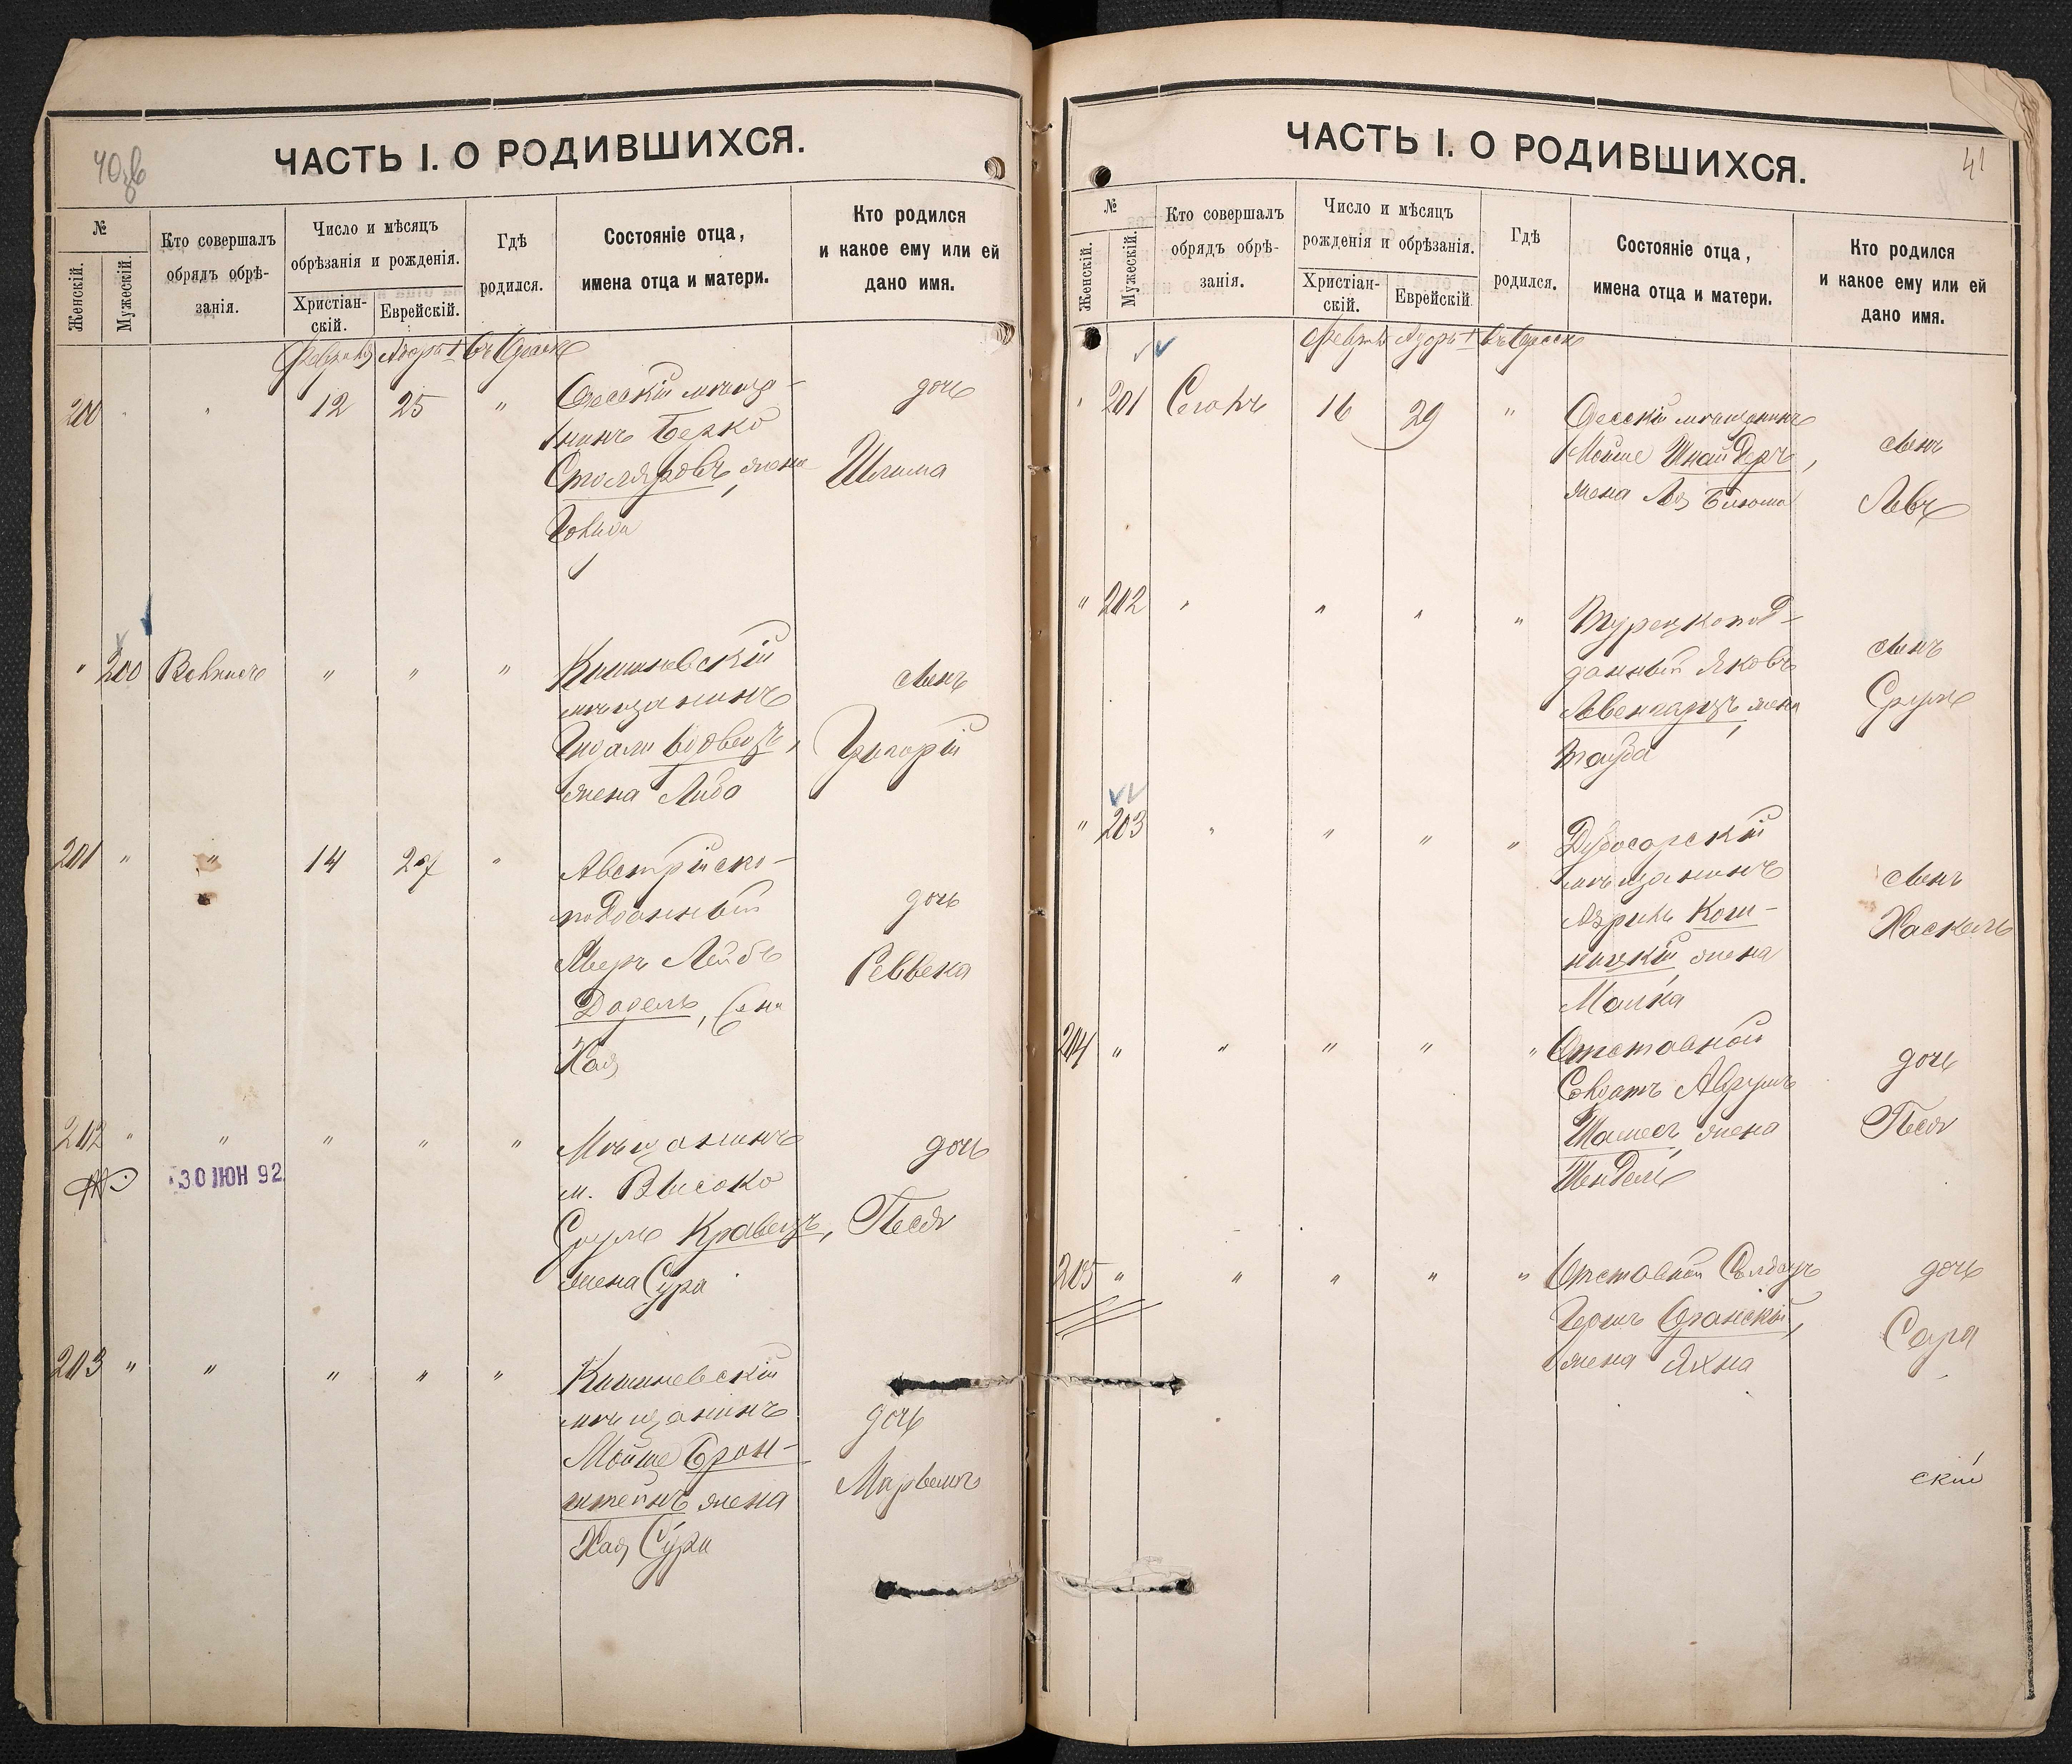 40 об
ЧАСТЬ I. О РОДИВШИХСЯ.
№
Женскій.
Мужескій.
Кто совершалъ
обрядъ обрѣ-
занія.
Число и мѣсяцъ
обрѣзанія и рожденія.
Христіан-
скій.
Еврейскій.
Гдѣ
родился.
Состояніе отца,
имена отца и матери.
Кто родился
и какое ему или ей
дано имя.
Адоръ 1 въ Одессѣ
200 " 12 25 "
Одесскій мѣща-
нинъ Берко
Столяровъ, жена
дочь
Шлима
" 200 " " "
Кишиневскій
мѣщанинъ
жена Либа
сынъ
Григорій
201 " " 14 27 "
Австрійско-
подданный
Мееръ Лейбъ
жена
Хая
дочь
Ревека
202 " " " " "
30 ІЮН 92
Мѣщанинъ
м. Высоко
Сруль Кравецъ,
жена Сура
дочь
Песя
203 " " " " "
Кишиневскій
мѣщанинъ
Мойше Брон-
штейнъ жена
Хая Сура
дочь
41
ЧАСТЬ I. О РОДИВШИХСЯ.
№
Женскій.
Мужескій.
Кто совершалъ
обрядъ обрѣ-
занія.
Число и мѣсяцъ
рожденія и обрѣзанія.
Христіан-
скій.
Еврейскій
Гдѣ
родился.
Состояніе отца,
имена отца и матери.
Кто родился
и какое ему или ей
дано имя.
Адоръ 1 въ Одессѣ
" 201 Сегалъ 16 29 "
Одесскій мѣщанинъ
Мойше Шнайдеръ,
жена Лея Блюма
сынъ
Левъ
" 202 " " " "
Турецкопод-
данный Яковъ
жена
Тауба
сынъ
Сруль
" 203 " " " "
Дубосарскій
мѣщанинъ
жена
Малка
сынъ
Хаскель
204 " " " " "
Отставной
Солдатъ Аврумъ
жена
Шендель
дочь
Песя
205 " " " " "
Отставной Солдатъ
Гершъ
жена Яхна
дочь
Сара
скій